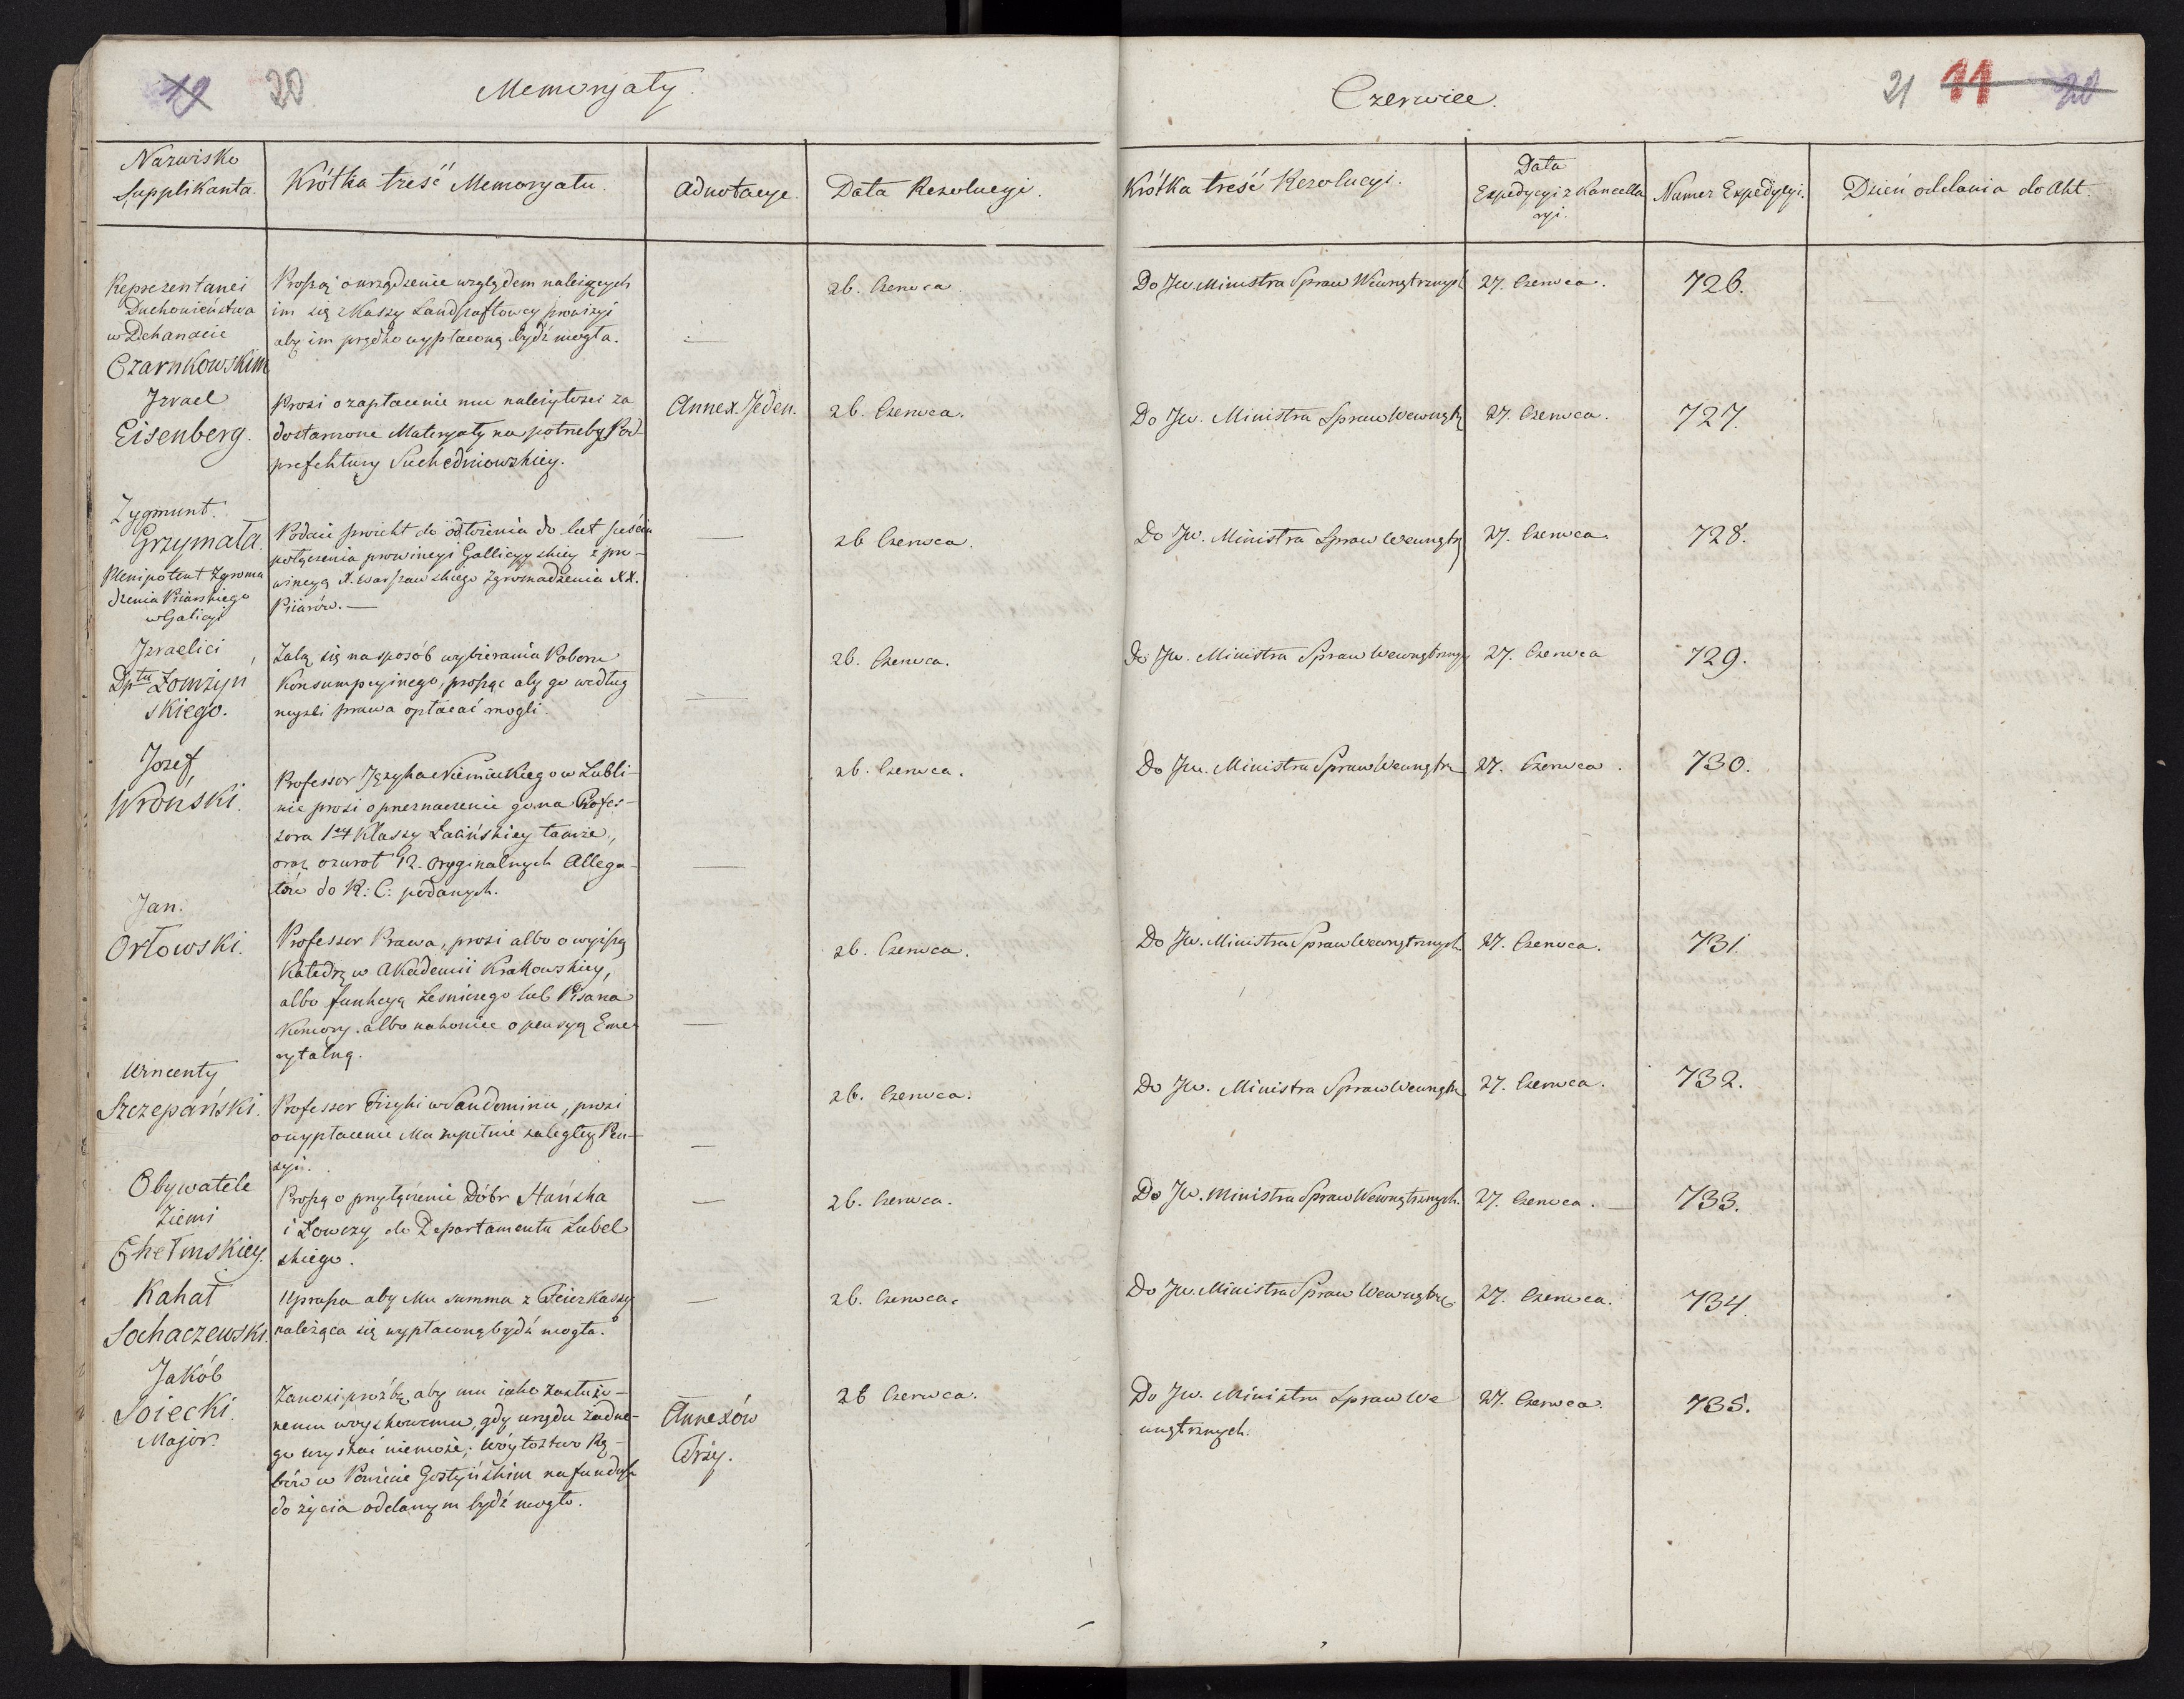 19 20 Memoryały.
Czerwiec.
21 11 20
Nazwisko
Supplikanta.
Krótka treść Memoryału.
Adnotacye.
Data Rezolucyi.
Krótka treść Rezolucyi.
Data
Expedycyi z Kancella
ryi.
Numer Expedycyi.
Dzień oddania do Akt.
Reprezentanci
Duchowieństwa
w Dekanacie
Czarnkowskim
Proszą o urządzenie względem należących
im się z Kassy Landszaftowey prowizyi
aby im prędko wypłaconą bydź mogła.
—
26. Czerwca.
Do Jw. Ministra Spraw Wewnętrznych
27. Czerwca.
726.
Izrael
Eisenberg.
Prosi o zapłacenie mu należytości za
dostarczone Materyały na potrzeby Pod-
prefektury Suchedniowskiey.
Annex. Jeden.
26. Czerwca.
Do Jw. Ministra Spraw Wewnętrz
27. Czerwca.
727.
Zygmunt
Grzymała.
Plenipotent Zgroma
dzenia Piiarskiego
w Galicyi
Podaie proiekt do odłożenia do lat sześciu
połączenia prowincyi Gallicyyskiey z pro-
wincyą X. Warszawskiego Zgromadzenia XX.
Piiarów.—
—
26 Czerwca.
Do Jw. Ministra Spraw Wewnętrz
27. Czerwca.
728.
Izraelici
Dptu Łomżyn
skiego.
Żalą się na sposób wybierania Poboru
Konsumpcyinego, prosząc aby go według
myśli prawa opłacać mogli.
—
26. Czerwca.
Do Jw. Ministra Spraw Wewnętrzny
27. Czerwca
729.
Jozef
Wroński.
Professor Języka Niemieckiego w Lubli-
nie prosi o przeznaczenie go na Profes-
sora 1szey Klassy Łacińskiey tamże,
oraz o zwrot 12. Oryginalnych Allega-
tów do R: C: podanych.
—
26. Czerwca.
Do Jw. Ministra Spraw Wewnętrz
27. Czerwca.
730.
Jan.
Orłowski.
Professor Prawa, prosi albo o wyiszą
Katedrę w Akademii Krakowskiey,
albo funkcyą Leśniczego lub Pisarza
Komory. albo nakoniec o pensyą Eme-
rytalną.
—
26. Czerwca.
Do Jw. Ministra Spraw Wewnętrznych.
27. Czerwca.
731.
Wincenty
Szczepański.
Professor Fizyki w Sandomirzu, prosi
o wypłacenie Mu zupełnie zaległey Pen-
syi.
—
26. Czerwca.
Do Jw. Ministra Spraw Wewnętrz
27. Czerwca.
732.
Obywatele
Ziemi
Chełmskiey.
Proszą o przyłączenie Dóbr Hańska
i Łowczy do Departamentu Lubel
skiego.
—
26. Czerwca.
Do Jw. Ministra Spraw Wewnętrznych.
27. Czerwca. —
733.
Kahał
Sochaczewski.
Uprasza aby Mu summa z Feierkassy
należąca się wypłaconą bydź mogła.
—
26. Czerwca.
Do Jw. Ministra Spraw Wewnętrz
27. Czerwca.
734.
Jakób
Soiecki.
Major.
Zanosi prożbę, aby mu iako zasłużo-
nemu woyskowemu, gdy urzędu żadne-
go uzyskać niemoże; Wóytostwo Rę-
bów w Powiecie Gostyńskim na fundusz
do życia oddanym bydź mogło.
Annexów
Trzy.
26 Czerwca.
Do Jw. Ministra Spraw We
wnętrznych.
27. Czerwca.
735.